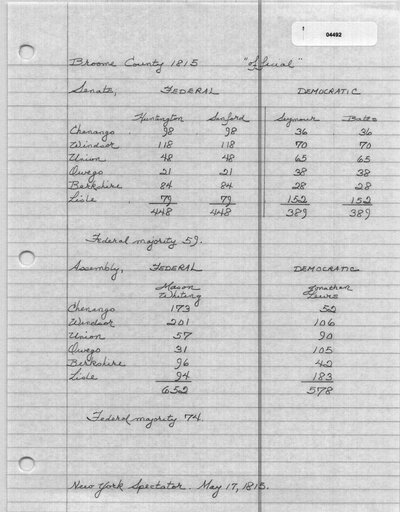 04492
Broome County 1815 "official"
Senate, FEDERAL DEMOCRATIC
Huntington Sanford Seymour Bates
Chenango 98 98 36 36
Windsor 118 118 70 70
Union 48 48 65 65
Owego 21 21 38 38
Berkshire 84 84 28 28
Lisle 79 79 152 152
448 448 389 389
Federal majority 59.
Assembly, FEDERAL DEMOCRATIC
Mason Jonathan
Whiting Lewis
Chenango 173 52
Windsor 201 106
Union 57 90
Owego 31 105
Berkshire 96 42
Lisle 94 183
652 578
Federal majority 74.
New York Spectator. May 17, 1815.